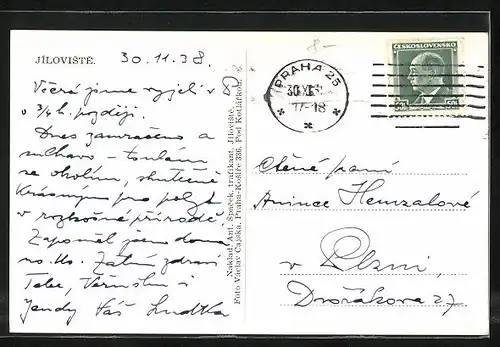 JÍLOVIŠTĚ. 30.11.38.
Včera jsme vyjeli v
v 3/4 h. později.
Dnes zamračeno a
sucho - toulám
se okolím, skutečně
krásným pro pobyt
v rozkošné přírodě.
Zapoměl jsem doma
Zatím zdraví
Tebe, Věrušku i
Jendy Váš Ludka
Naklad. Ant. Špaček, trafikant, Jíloviště.
Foto Václav Čapka, Praha-Košíře 336, Pod Kotlářkou.
8-
PRAHA 25
30.XI.
17-18
ČESKOSLOVENSKO
50h 50h
Ctěné paní
Anince Hemzalové
v Plzni,
Dvořákova 27